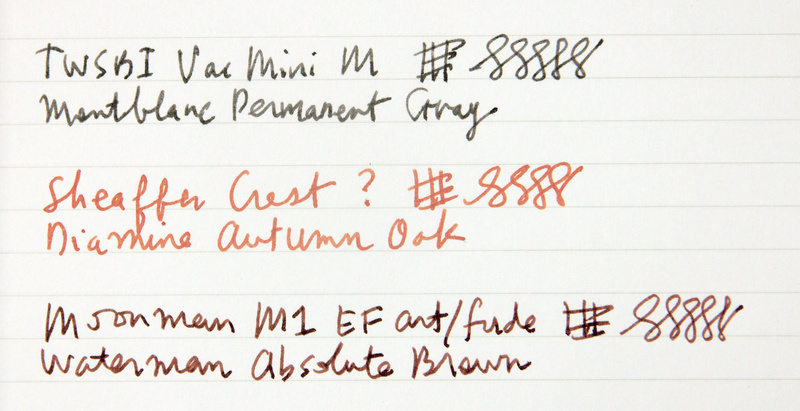 TWSBI Vac Mini M
Montblanc Permanent Gray
Sheaffer Crest ?
Diamine Autumn Oak
Moonman M1 EF art/fude
Waterman Absolute Brown